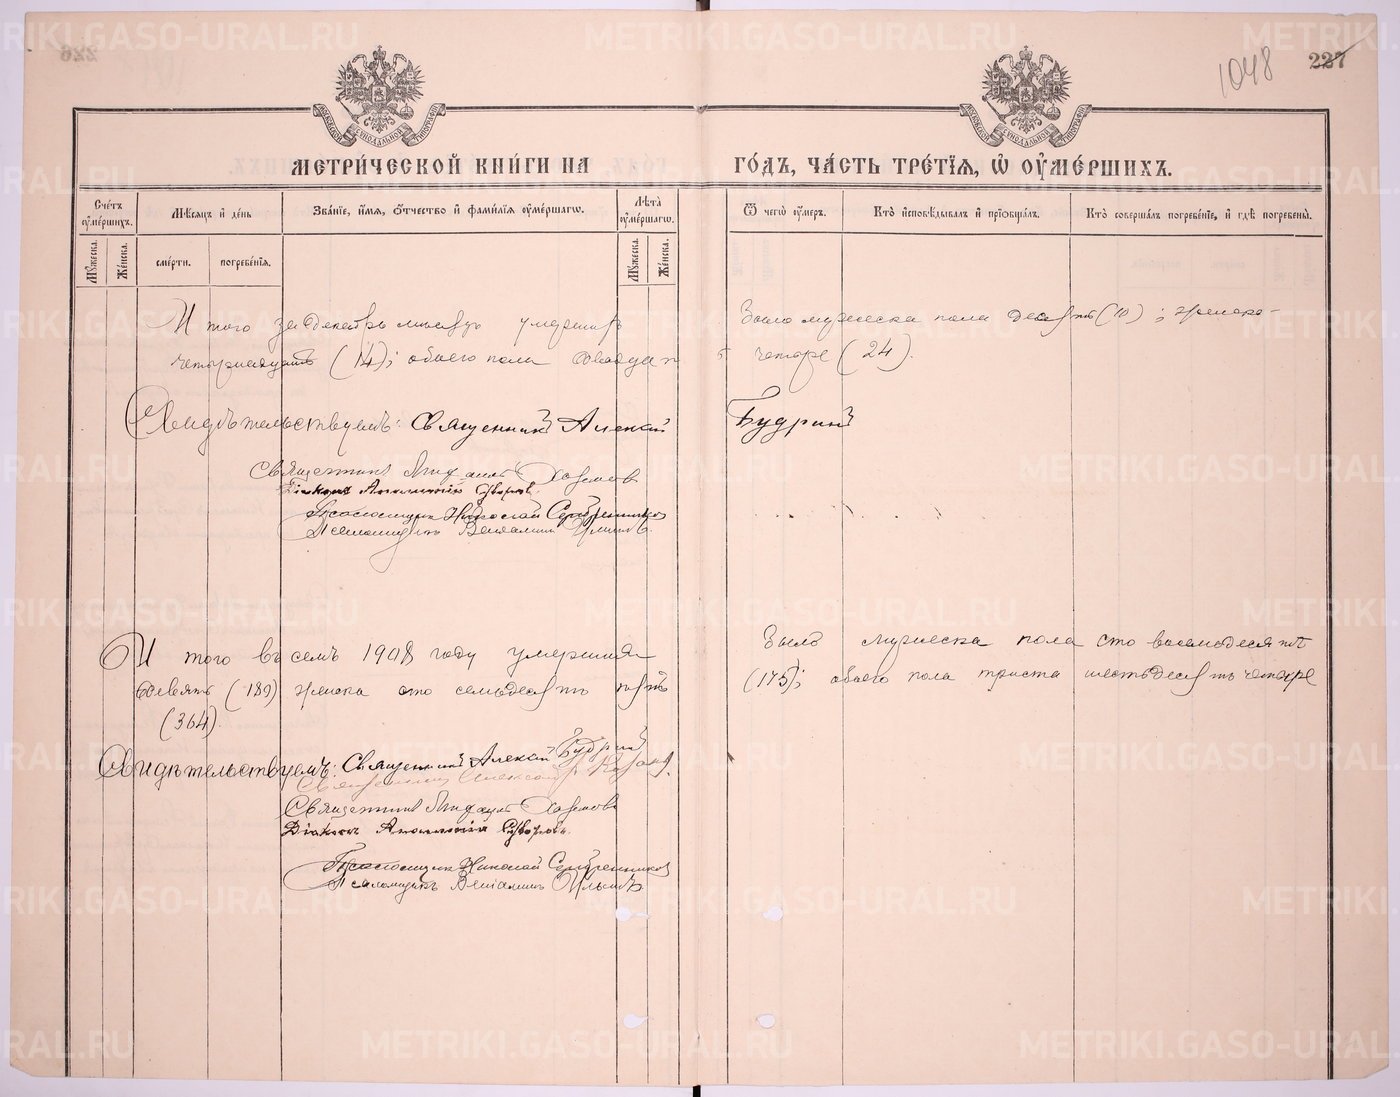 1048
227
МЕТРИ́ЧЕСКОЙ КНИ́ГИ НА ГО́ДЪ, ЧА́СТЬ ТРЕ́ТІѦ, Ѡ҆ ОУ҆МЕ́РШИХЪ.
Сче́тъ оу҆ме́ршихъ.
Мѣ́сѧцъ и҆ де́нь
Зва́ніе, и҆́мѧ, ѻ҆́тчество и҆ фами́лїѧ оу҆ме́ршагѡ.
Лѣ́та оу҆ме́ршагѡ.
Ѿ чегѡ̀ оу҆́меръ.
Кто̀ и҆сповѣ́дывалъ и҆ прїѡбща́лъ.
Кто̀ соверша́лъ погребе́нїе, и҆ гдѣ̀ погребены̀.
Мꙋ́жеска.
Же́нска.
сме́рти.
погребе́нїѧ.
Мꙋ́жеска.
Же́нска.
Итого за Декабрь месяцъ умерших было мужеска пола десять (10); женска-
четырнадцать (14); обоего пола двадцать четыре (24).
Свидѣтельствуемъ: Священникъ Алексій Будринъ
Священникъ Михаилъ
Діаконъ
Псаломщик Николай Серебренников
Псаломщикъ Веніаминъ
Итого въ семъ 1908 году умерших было мужеска пола сто восемьдесятъ
девять (189) женска сто семьдесятъ пять (175); обоего пола триста шестьдесятъ четыре
(364).
Свидѣтельствуемъ: Священникъ Алексій Будринъ
Священникъ Александръ
Священникъ Михаилъ
Діаконъ
Псаломщик Николай Серебренников
Псаломщикъ Веніаминъ
METRIKI.GASO-URAL.RU